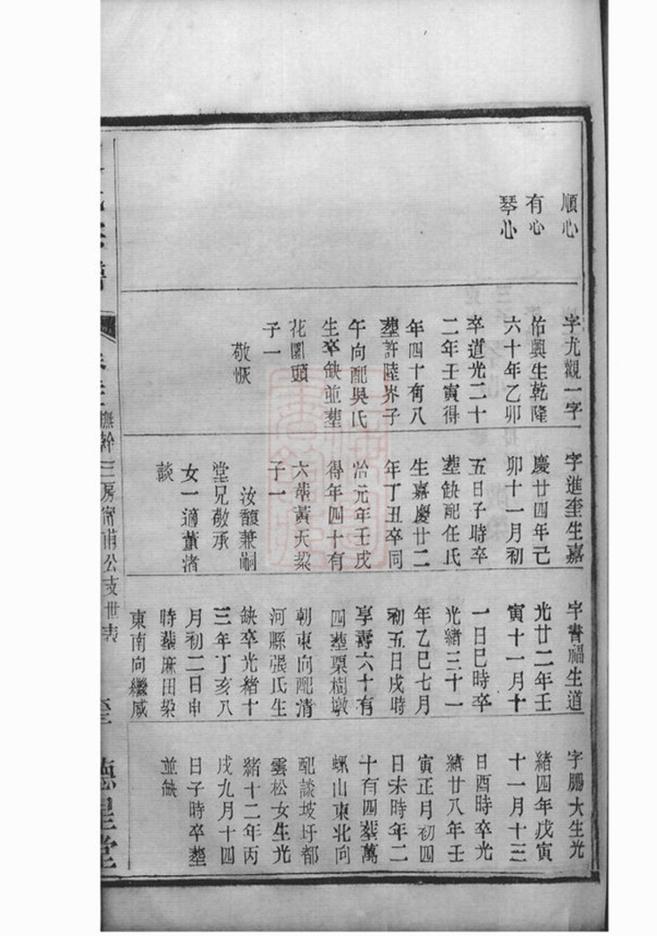 順心
有心
琴心
字尤觀一字
佑興生乾隆
六十年乙卯
卒道光二十
二年壬寅得
年四十有八
塟許陸界子
午向配吳氏
生卒缺並塟
花園頭
子一
敬恢
字進奎生嘉
慶廿四年己
卯十一月初
五日子時卒
塟缺配任氏
生嘉慶廿二
年丁丑卒同
治元年壬戌
得年四十有
六塟黃天梁
子一
汝馥兼嗣
堂兄敬承
女一適董渚
談
字書福生道
光廿二年壬
寅十一月十
一日巳時卒
光緒三十一
年乙巳七月
初五日戌時
享壽六十有
四塟栗樹墩
朝東向配清
河縣張氏生
缺卒光緒十
三年丁亥八
月初二日申
時塟麻田梁
東南向繼咸
字鵬大生光
緒四年戊寅
十一月十三
日酉時卒光
緒廿八年壬
寅正月初四
日未時年二
十有四塟萬
螺山東北向
配談坡圩都
雲松女生光
緒十二年丙
戌九月十四
日子時卒塟
並缺
三房甯甫公支世表
德星堂